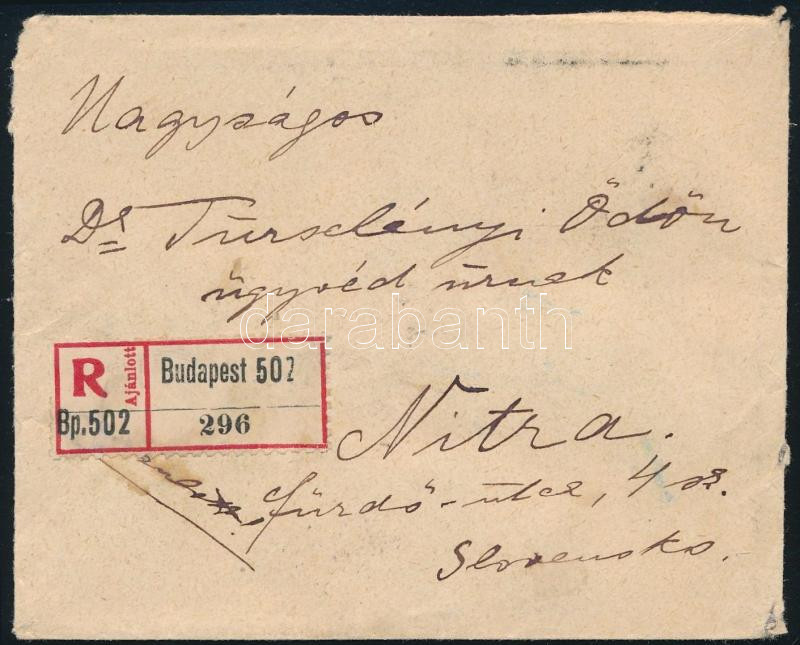 Nagyságos
Dr Turselényi Ödön
ügyvéd úrnak
darabanth
R
Ajánlott
Budapest 502
Bp.502
296
Nitra.
fürdő-utca, 4 sz.
Slovensko.